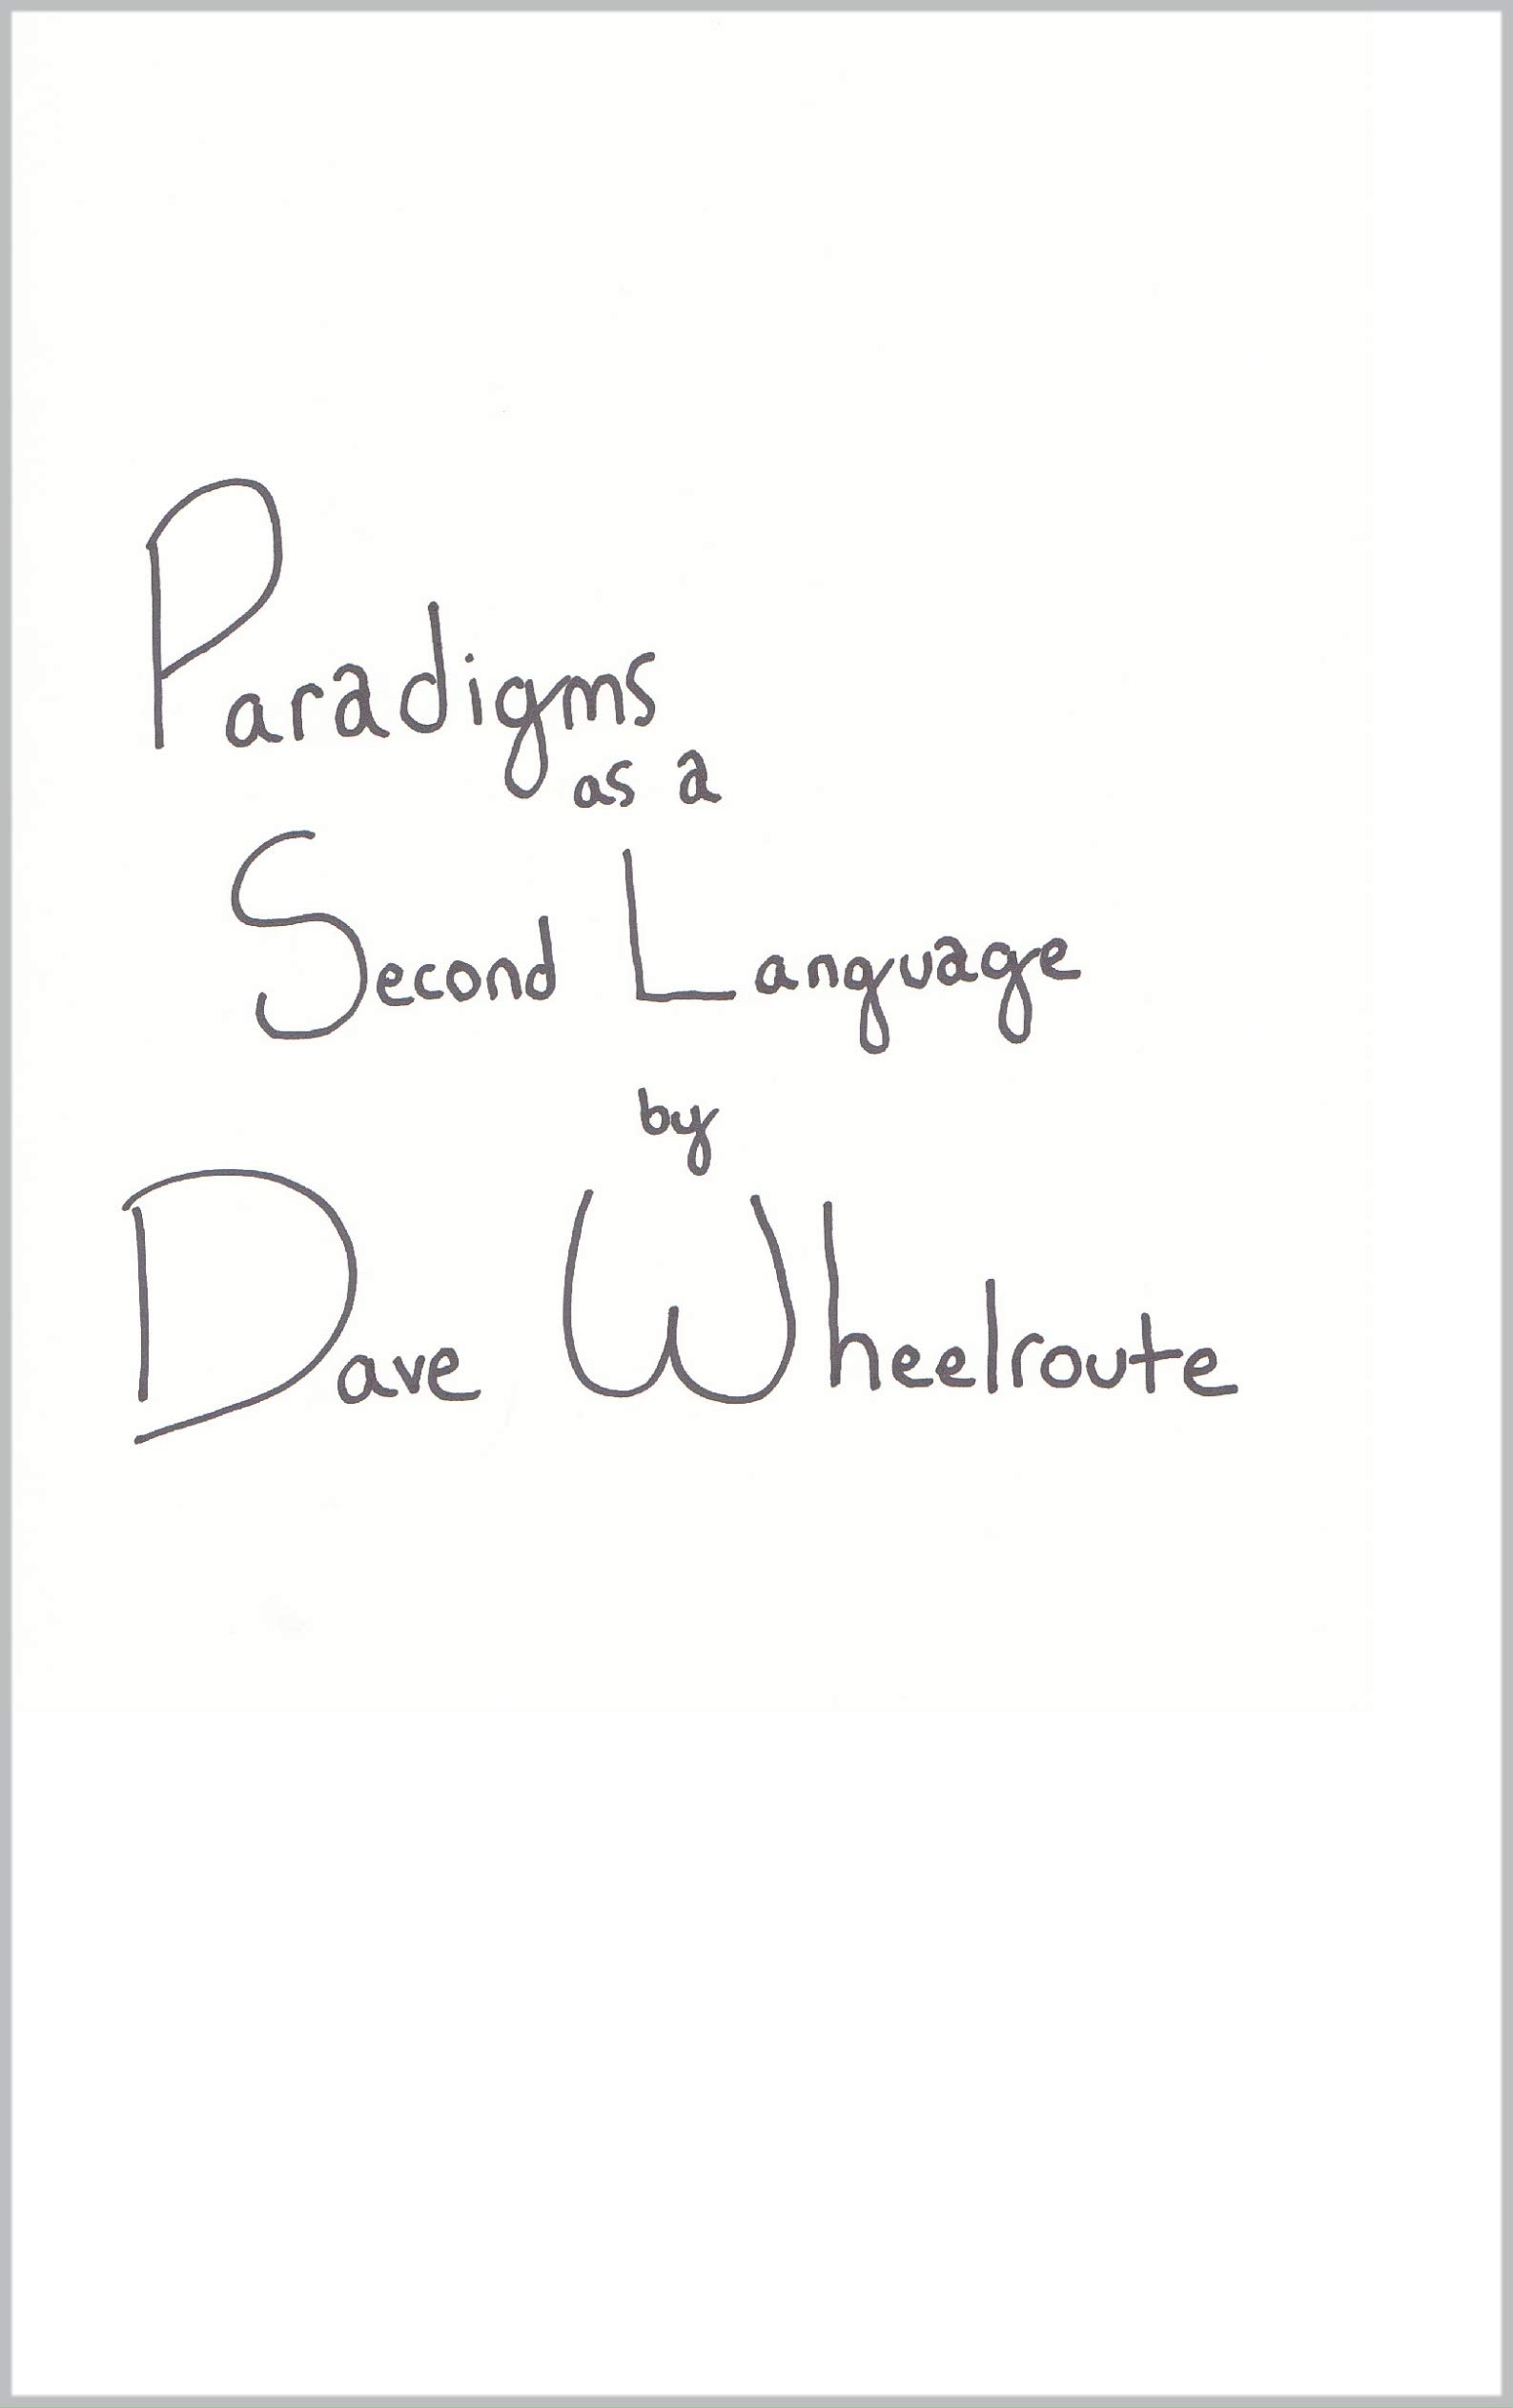 Paradigms
as a
Second Language
by
Dave Wheelroute